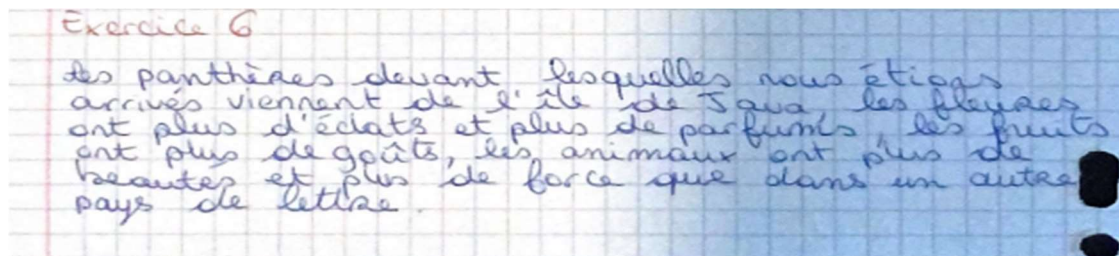 Exercice 6
les panthères devant lesquelles nous étions
arrivés viennent de l'île de Java, les fleures
ont plus d'éclats et plus de parfums, les fruits
ont plus de goûts, les animaux ont plus de
beautés et plus de force que dans un autre
pays de lettre.